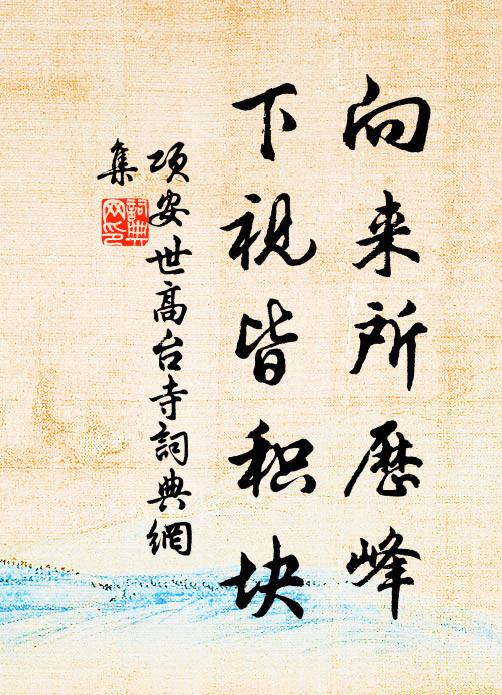 向来所历峰
下视皆积块
项安世高台寺詞典網
集
詞典
网印